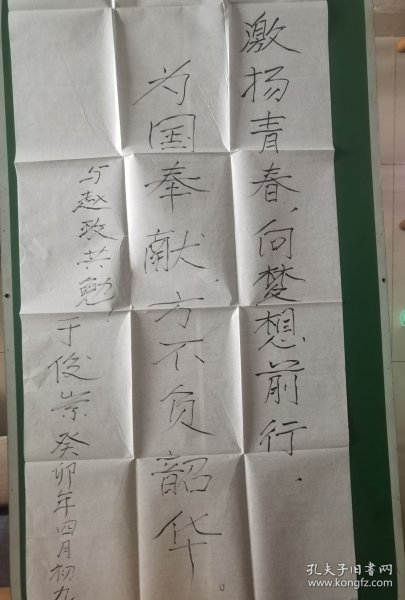 激扬青春,向梦想前行.
为国奉献.方不负韶华。
与赵政共勉!
于俊崇 癸卯年四月初九
孔夫子旧书网
www.kongfz.com